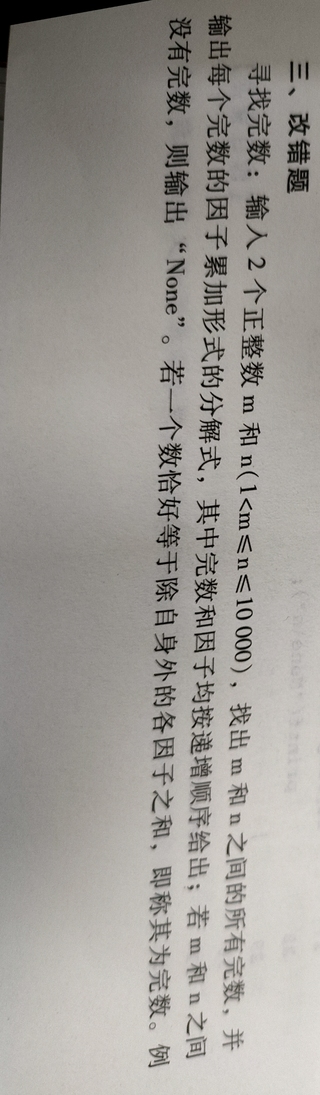 三、改错题
寻找完数：输入 2 个正整数 m 和 n(1<m≤n≤10 000)，找出 m 和 n 之间的所有完数，并
输出每个完数的因子累加形式的分解式，其中完数和因子均按递增顺序给出；若 m 和 n 之间
没有完数，则输出“None”。若一个数恰好等于除自身外的各因子之和，即称其为完数。例